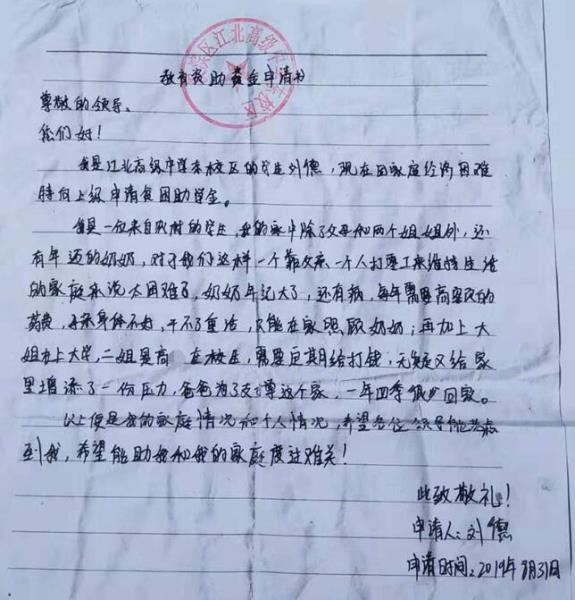 滨区江北高级中学东校区
教育资助资金申请书
尊敬的领导。
您们好！
我是江北高级中学东校区的学生刘德，现在因家庭经济困难
特向上级申请贫困助学金。
我是一位来自农村的学生，我的家中除了父母和两个姐姐外，还
有年迈的奶奶，对于我们这样一个靠父亲一个人打零工来维持生活
的家庭来说太困难了，奶奶年记大了，还有病，每年需要高额的
药费，母亲身体不好，干不了重活，只能在家照顾奶奶；再加上大
姐在上大学，二姐是高 在校生，需要定期给打钱，无疑又给家
里增添了一份压力，爸爸为了支撑这个家，一年四季很少回家。
以上便是我的家庭情况和个人情况，希望各位领导能考虑
到我，希望能助我和我的家庭度过难关！
此致敬礼！
申请人：刘德
申请时间：2019年8月31日